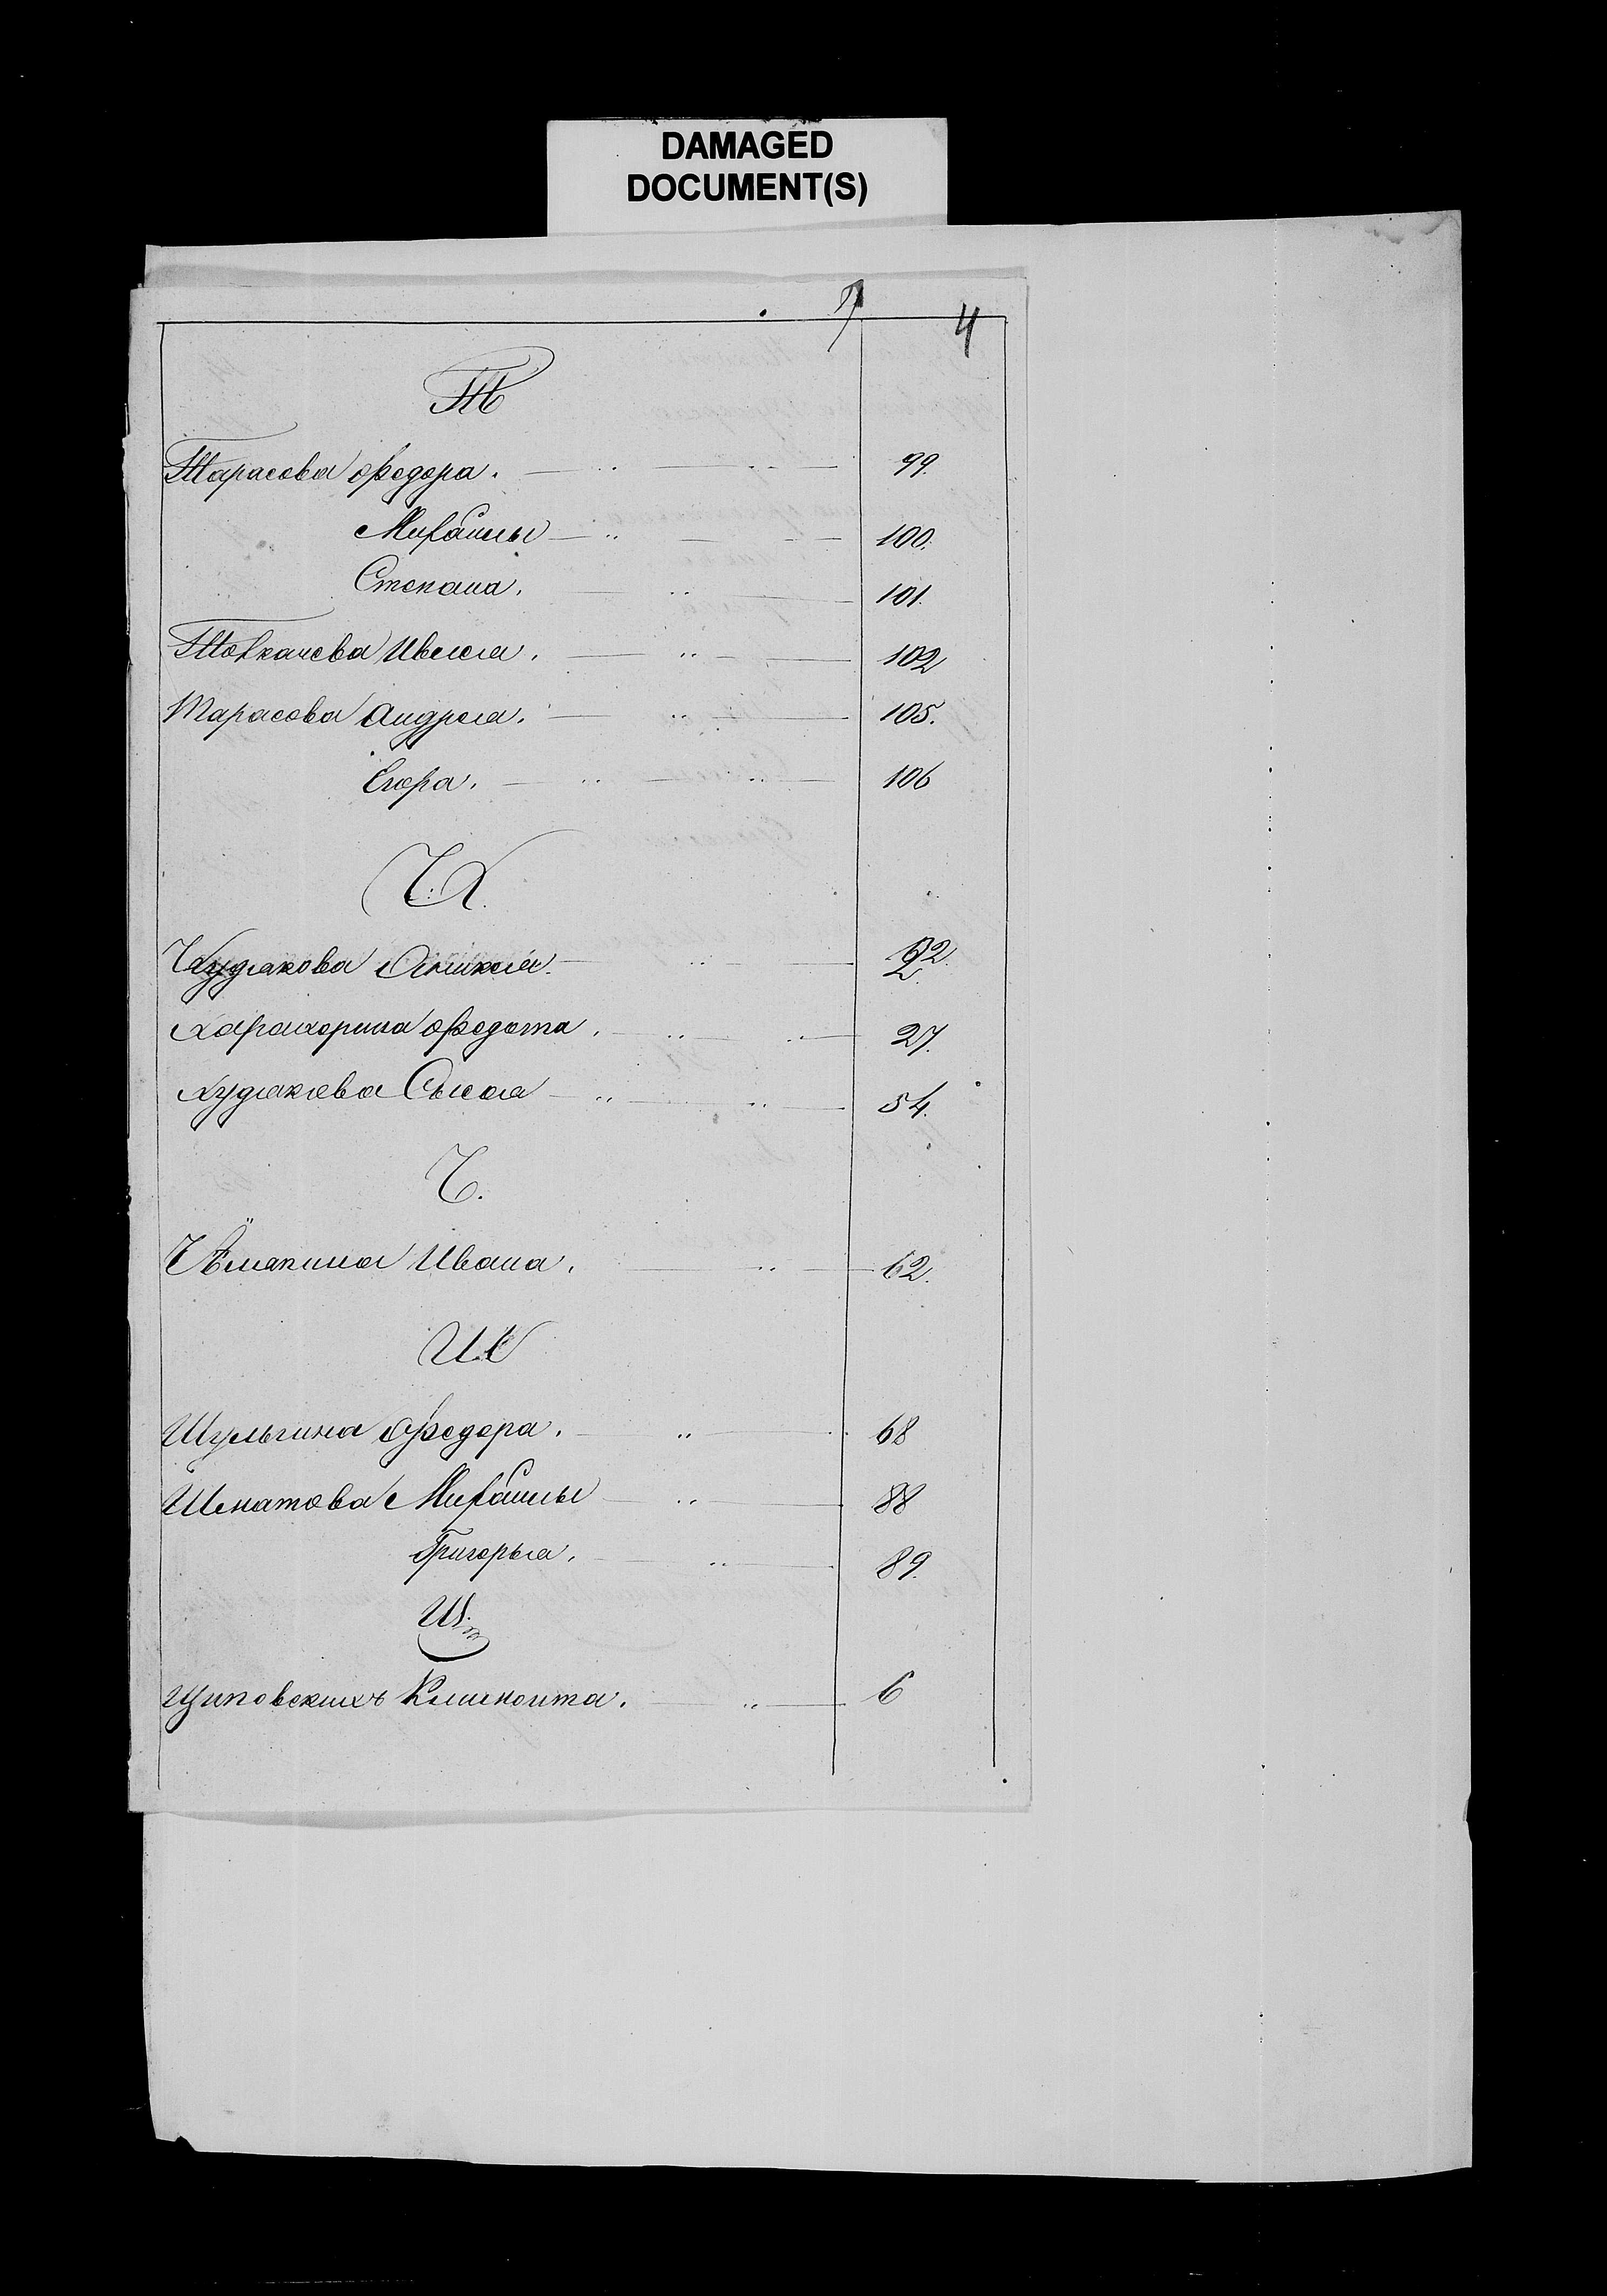 DAMAGED
DOCUMENT(S)
4
Т
Тарасова Федора. 99.
Михаилы 100.
Степана. 101.
Толкачева 102
Тарасова Андрея. 105.
Егора. 106
Х.
Худякова
Федота. 27.
Худякова Сысоя 54.
Ч.
Ивана. 62.
Ш
Шульгина Федора. 68
Шматова Михаилы 88
Григорья. 89.
Щ.
Щиповскихъ Климонта. 6